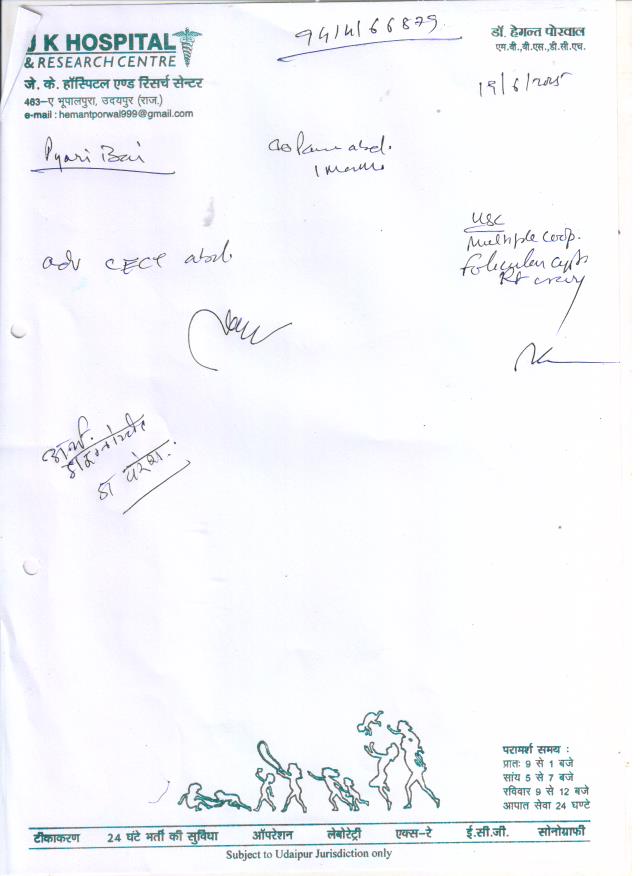 9414166879
J K HOSPITAL
& RESEARCH CENTRE
जे. के. हॉस्पिटल एण्ड रिसर्च सेन्टर
463-ए भूपालपुरा, उदयपुर (राज.)
e-mail : hemantporwal999@gmail.com
डॉ. हेमन्त पोरवाल
एम.बी.,बी.एस.,डी.सी.एच.
Pyari Bai
abd.
1
USG
Multiple
Follicular cysts
Rt ovary
adv CECT abd.
डा
परामर्श समय :
प्रातः 9 से 1 बजे
सांय 5 से 7 बजे
रविवार 9 से 12 बजे
आपात सेवा 24 घण्टे
टीकाकरण 24 घंटे भर्ती की सुविधा ऑपरेशन लेबोरेट्री एक्स-रे ई.सी.जी. सोनोग्राफी
Subject to Udaipur Jurisdiction only